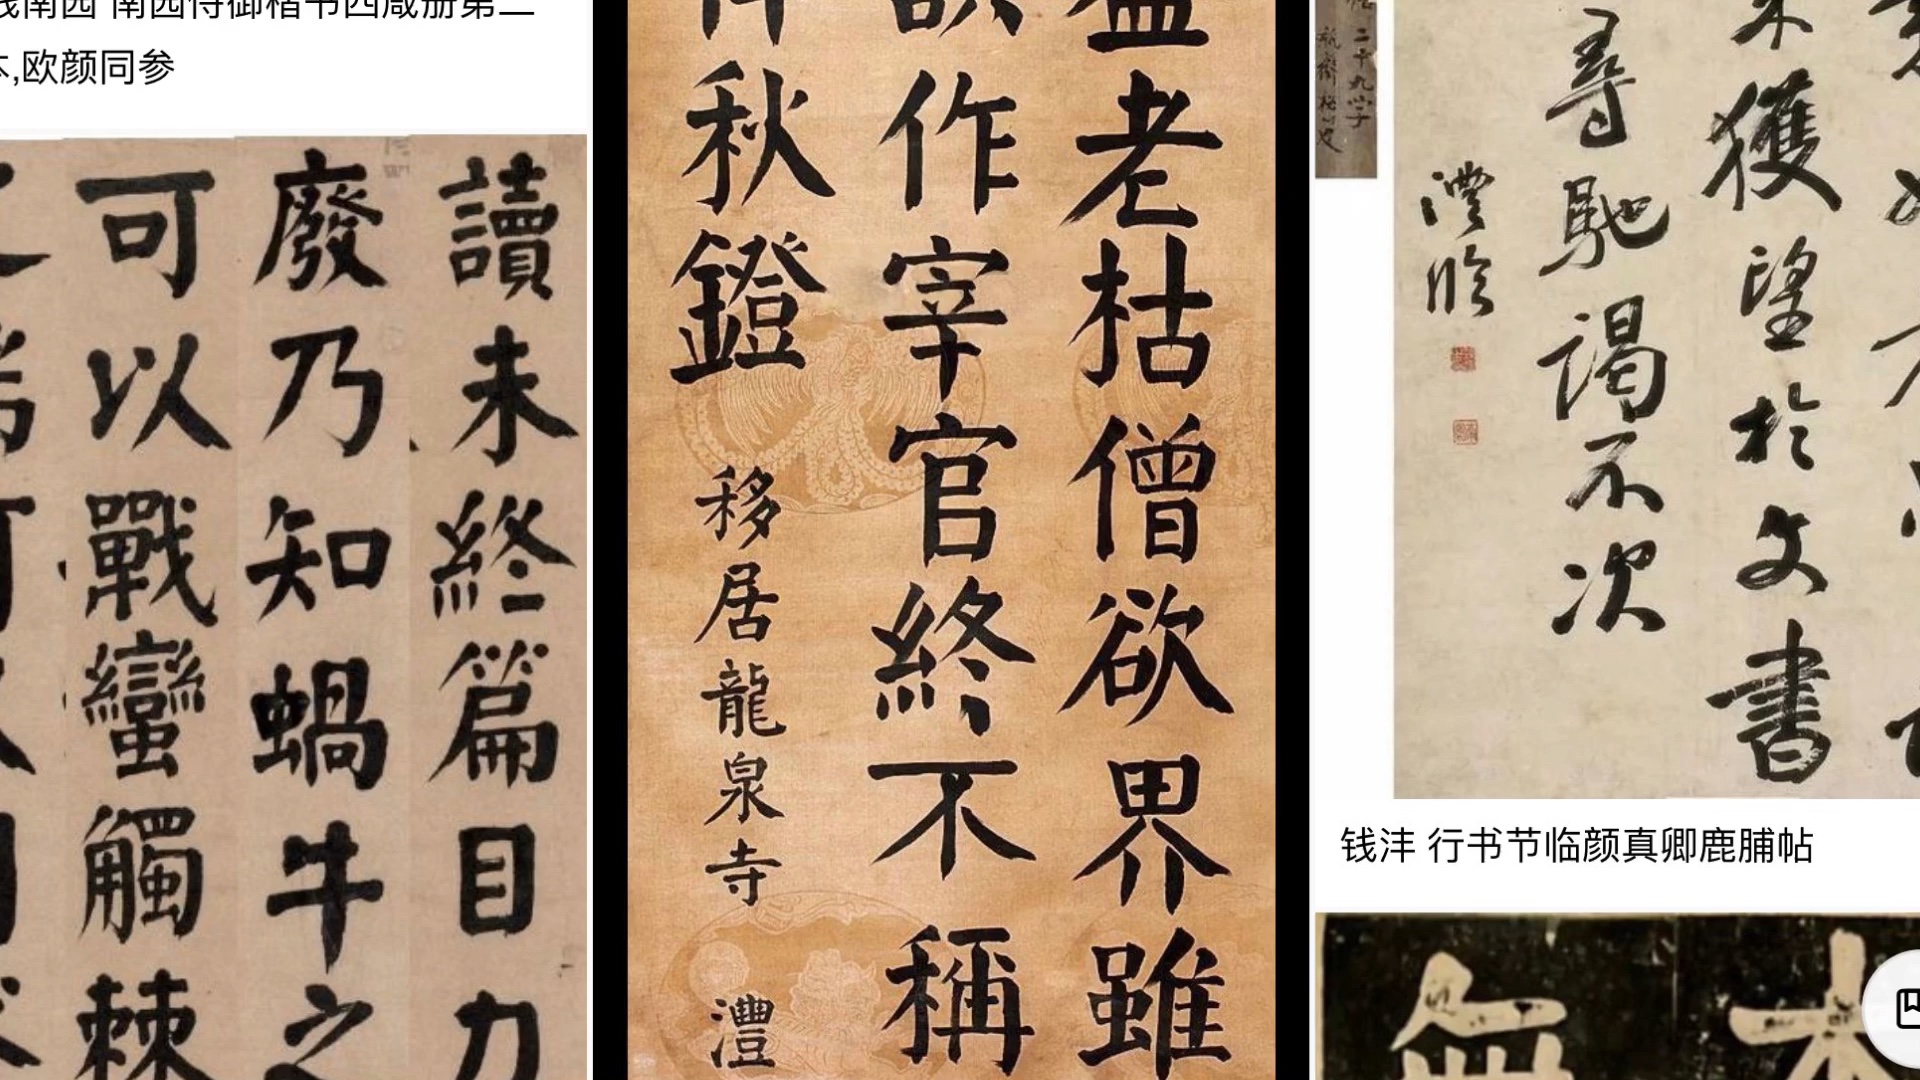 钱南园 南园侍御楷书四箴册第二
本,欧颜同参
讀未終篇目力
廢乃知蝸牛之
可以戰蠻觸棘
老枯僧欲界雖
作宰官終不稱
秋鐙
移居龍泉寺
灃
獲望於文書
尋馳謁不次
灃臨
二十九字子
钱沣 行书节临颜真卿鹿脯帖